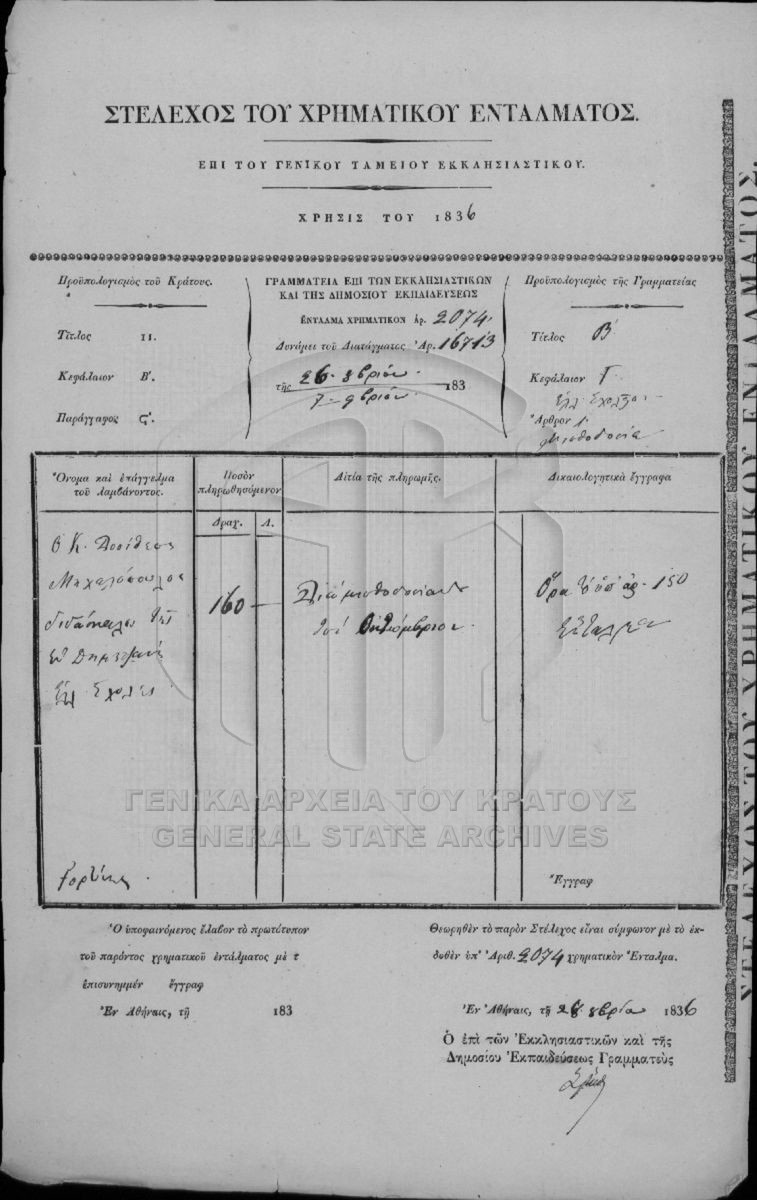 ΣΤΕΛΕΧΟΣ ΤΟΥ ΧΡΗΜΑΤΙΚΟΥ ΕΝΤΑΛΜΑΤΟΣ.
ΕΠΙ ΤΟΥ ΓΕΝΙΚΟΥ ΤΑΜΕΙΟΥ ΕΚΚΛΗΣΙΑΣΤΙΚΟΥ.
ΧΡΗΣΙΣ ΤΟΥ 1836
Προϋπολογισμὸς τοῦ Κράτους.
Τίτλος II.
Κεφάλαιον Β'.
Παράγγαφος ς'.
ΓΡΑΜΜΑΤΕΙΑ ΕΠΙ ΤΩΝ ΕΚΚΛΗΣΙΑΣΤΙΚΩΝ
ΚΑΙ ΤΗΣ ΔΗΜΟΣΙΟΥ ΕΚΠΑΙΔΕΥΣΕΩΣ
ΕΝΤΑΛΜΑ ΧΡΗΜΑΤΙΚΟΝ ἀρ. 2074
Δυνάμει τοῦ Διατάγματος Ἀρ. 16713
τῆς 26. 8βρίου 183
7. 9βρίου
Προϋπολογισμὸς τῆς Γραμματείας
Τίτλος Β'
Κεφάλαιον Γ.
Ἑλλ. Σχολεῖα
Ἄρθρον 1.
μισθοδοσία
Ὄνομα καὶ ἐπάγγελμα
τοῦ λαμβάνοντος.
Ποσὸν
πληρωθησόμενον
Αἰτία τῆς πληρωμῆς.
Δικαιολογητικὰ ἔγγραφα
Δραχ. Λ.
Ὁ Κ. Δοσίθεος
Μιχαλόπουλος
διδάσκαλος
Δημητζάνῃ
Ἑλλ. Σχολείου
160 —
Διὰ μισθοδοσίαν
τοῦ Ὀκτώμβριου.
Ὅρα τὸ ὑπ' ἀρ. 150
ἔνταλμα
Γορτύνης
Ἔγγραφ
Ὁ ὑποφαινόμενος ἔλαβον τὸ πρωτότυπον
τοῦ παρόντος χρηματικοῦ ἐντάλματος μὲ τ
ἐπισυνημμέν ἔγγραφ
Ἐν Ἀθήναις, τῇ 183
Θεωρηθὲν τὸ παρὸν Στέλεχος εἶναι σύμφωνον μὲ τὸ ἐκ-
δοθὲν ὑπ' Ἀριθ. 2074 χρηματικὸν Ἔνταλμα.
Ἐν Ἀθήναις, τῇ 26 8βρίου 1836
Ὁ ἐπὶ τῶν Ἐκκλησιαστικῶν καὶ τῆς
Δημοσίου Ἐκπαιδεύσεως Γραμματεὺς
ΣΤΕΛΕΧΟΣ ΤΟΥ ΧΡΗΜΑΤΙΚΟΥ ΕΝΤΑΛΜΑΤΟΣ.
ΓΕΝΙΚΑ ΑΡΧΕΙΑ ΤΟΥ ΚΡΑΤΟΥΣ
GENERAL STATE ARCHIVES